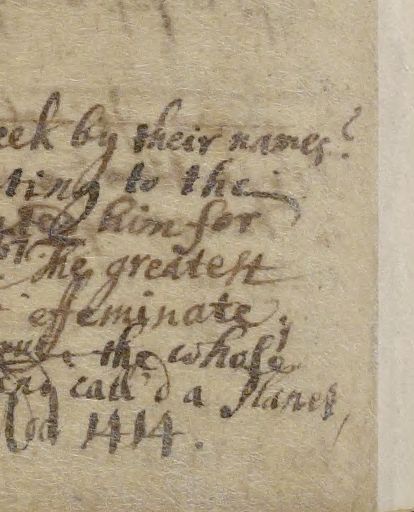 eek by their names?
ting to the
him for
The greatest
effeminate,
the whole
call'd a Planet,
1414.